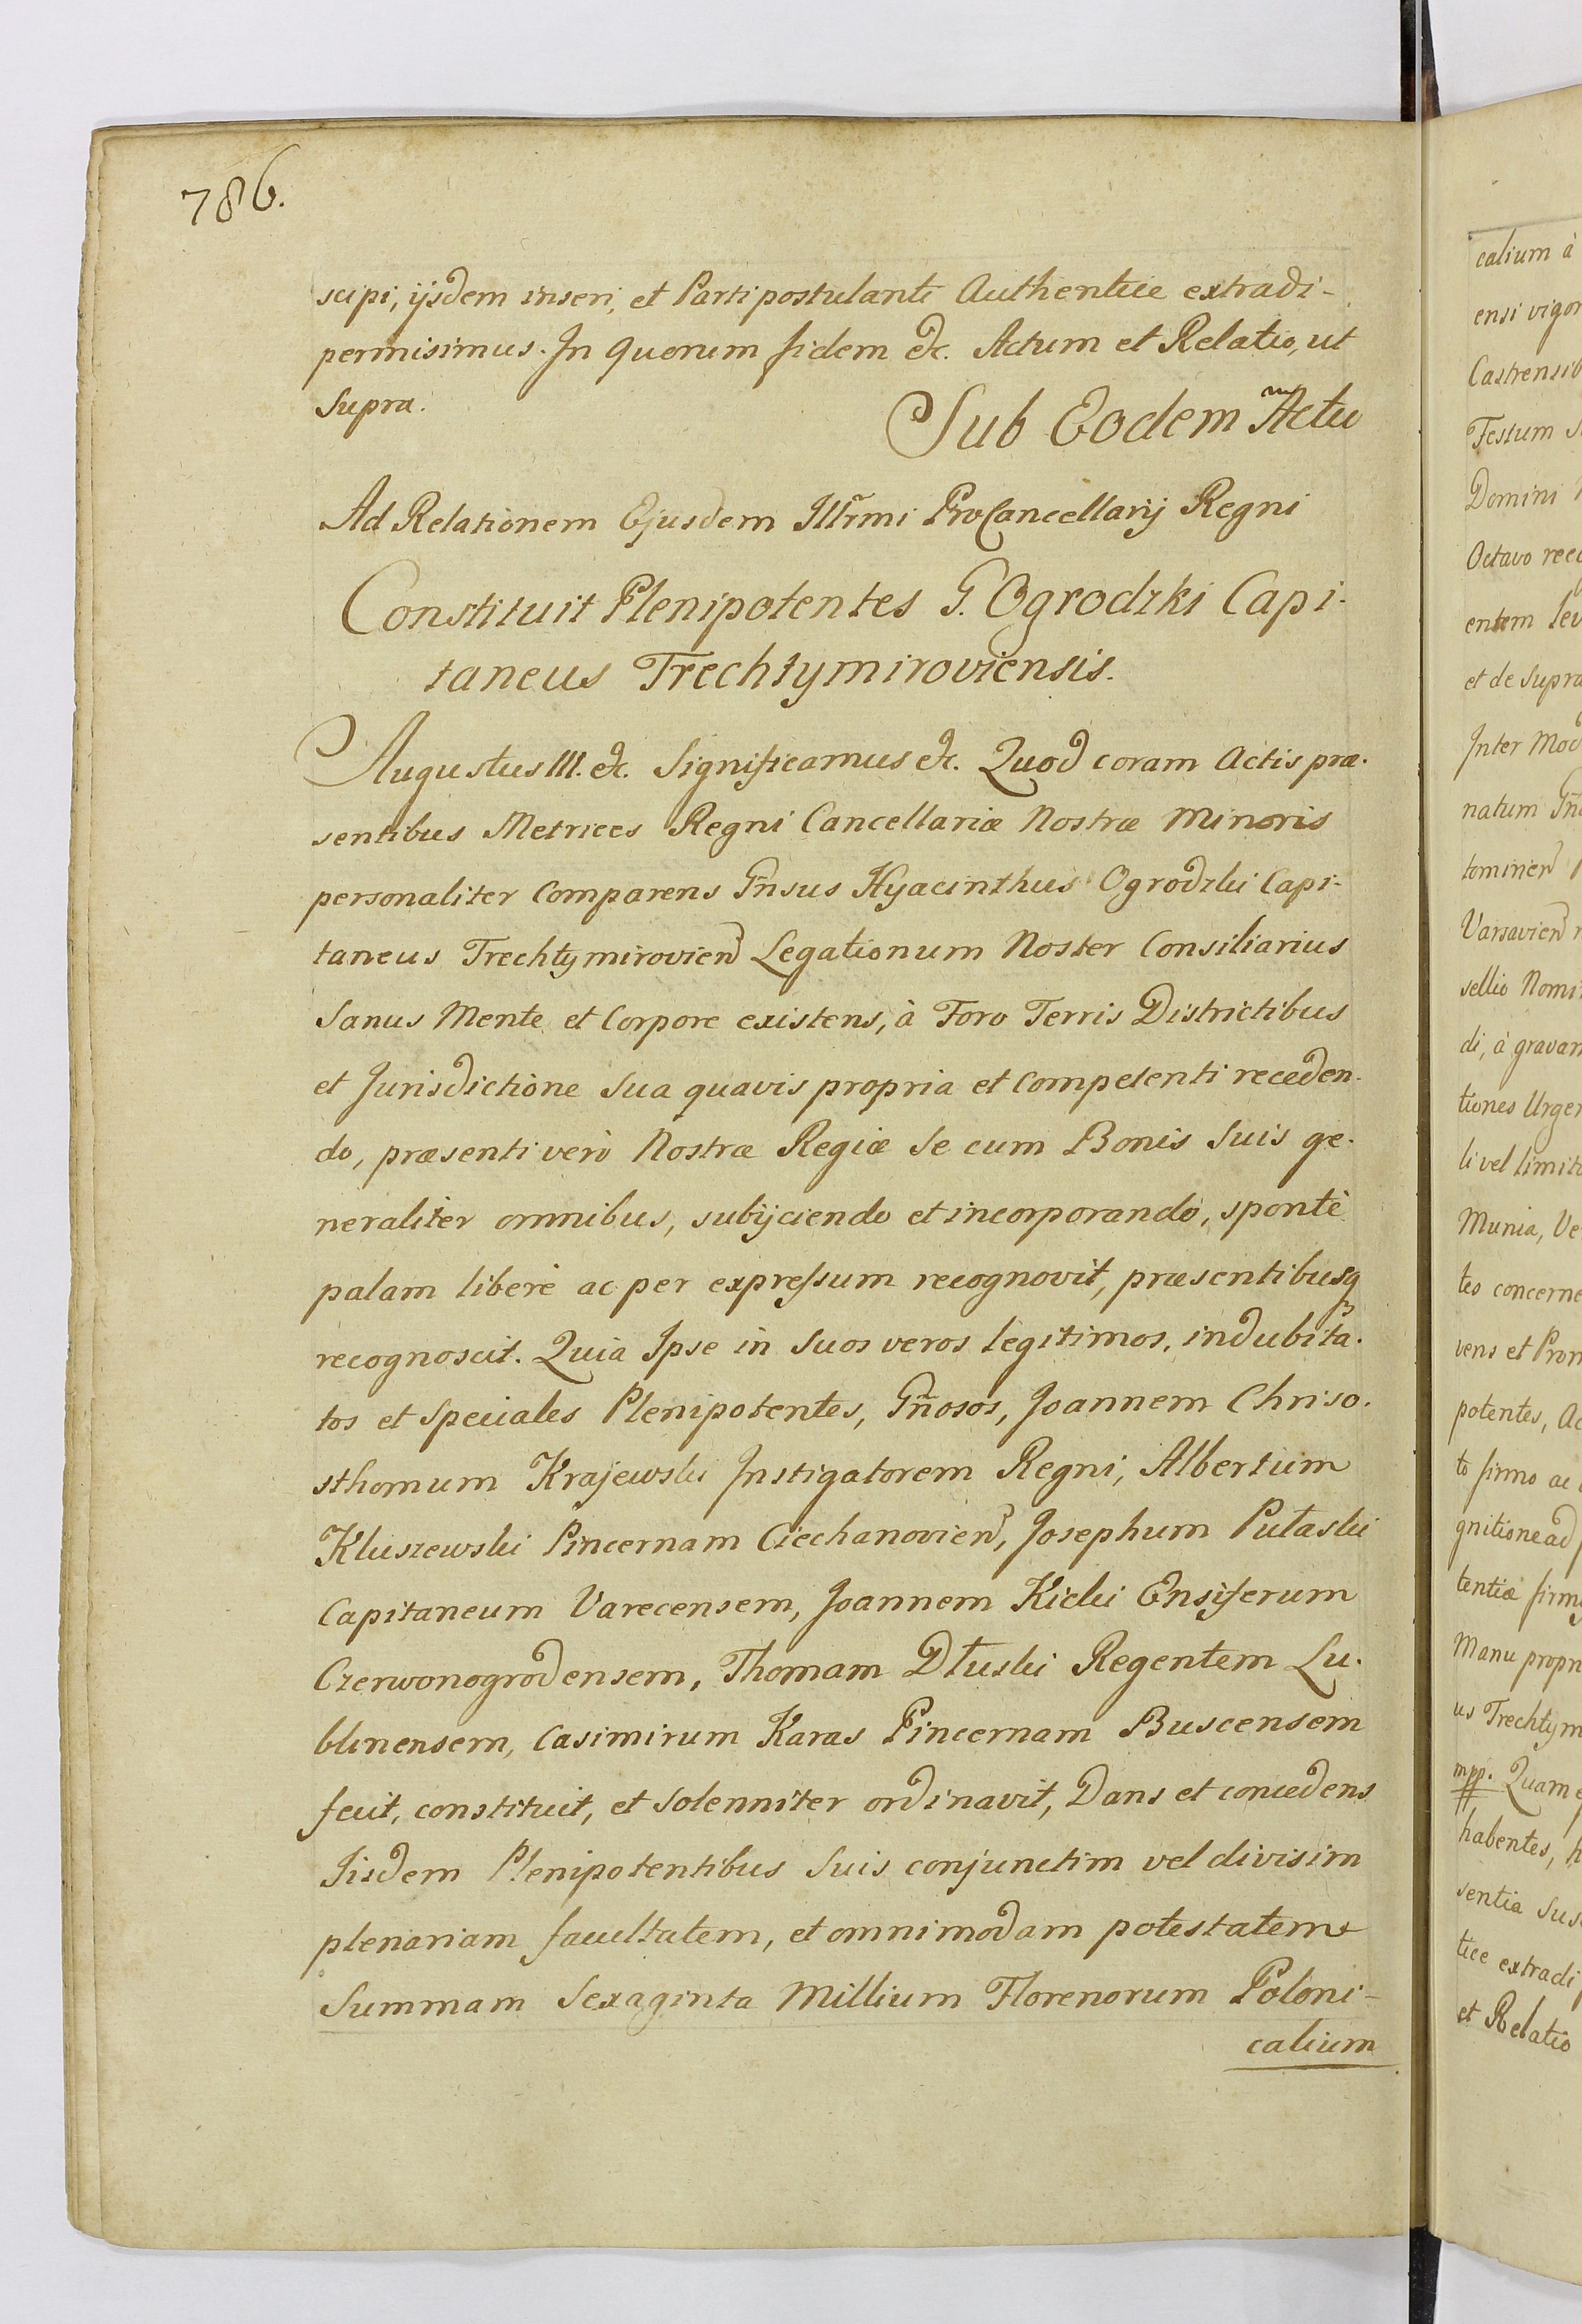 786.
scipi, ijsdem inseri, et Parti postulanti Authentice extradi-
permisimus. In quorum fidem etc. Actum et Relatio, ut
Supra.
Sub Eodem Actu
Ad Relationem Ejusdem Illr̃mi ProCancellarij Regni
Constituit Plenipotentes G. Ogrodzki Capi-
taneus Trechtymiroviensis.
Augustus III. etc. Significamus etc. Quod coram Actis præ-
sentibus Metrices Regni Cancellariæ Nostræ Minoris
personaliter Comparens Gñsus Hyacinthus Ogrodzki Capi-
taneus Trechtymirovien Legationum Noster Consiliarius
Sanus Mente et Corpore existens, à Foro Terris Districtibus
et Jurisdictione Sua quavis propria et Competenti receden-
do, præsenti verò Nostræ Regiæ Se cum Bonis Suis ge-
neraliter omnibus, subijciendo et incorporando, spontè
palam liberè ac per expressum recognovit, præsentibusq
recognoscit. Quia Ipse in Suos veros legitimos, indubita-
tos et Speciales Plenipotentes, Gñosos, Joannem Chriso-
sthomum Krajewski Instigatorem Regni, Albertum
Kluszewski Pincernam Ciechanovien, Josephum Pułaski
Capitaneum Varecensem, Joannem Kicki Ensiferum
Czerwonogrodensem, Thomam Dłuski Regentem Lu-
blinensem, Casimirum Karas Pincernam Buscensem
fecit, constituit, et Solenniter ordinavit, Dans et concedens
Iisdem Plenipotentibus Suis conjunctim vel divisim
plenariam facultatem, et omnimodam potestatem
Summam Sexaginta Millium Florenorum Poloni-
calium
calium à
ensi vigor
Castrensib
Festum S
Domini
Octavo rec
entem lev
et de Supra
Inter Mod
natum Gñ
tominen
Varsavien
sellio Nomi
di, à gravam
tiones Urgen
li vel limit
Munia, Ve
tes concerne
vens et Prom
potentes, Ac
to firmo ac
gnitione ad
tentiæ firm
Manu propri
us Trechtym
mpp. Quam
habentes, h
sentia Sus
tice extradi
et Relatio